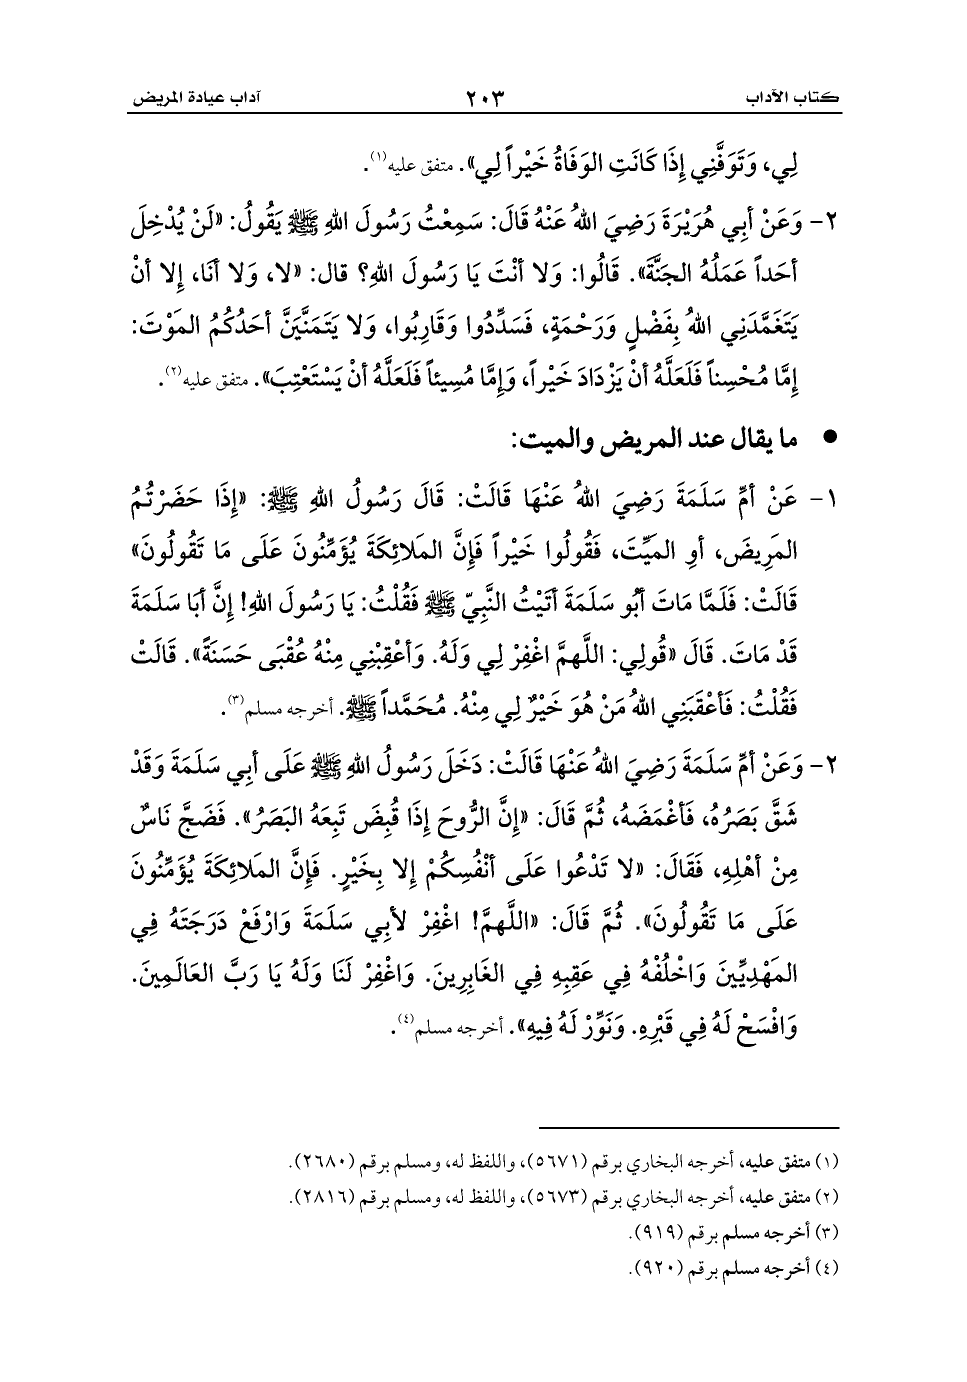 كتاب الآداب ٢٠٣ آداب عيادة المريض
لِي، وَتَوَفَّنِي إِذَا كَانَتِ الوَفَاةُ خَيْراً لِي». متفق عليه(١).
٢- وَعَنْ أبِي هُرَيْرَةَ رَضِيَ اللهُ عَنْهُ قَالَ: سَمِعْتُ رَسُولَ اللهِ ﷺ يَقُولُ: «لَنْ يُدْخِلَ
أحَداً عَمَلُهُ الجَنَّةَ». قَالُوا: وَلا أنْتَ يَا رَسُولَ اللهِ؟ قال: «لا، وَلا أنَا، إلا أنْ
يَتَغَمَّدَنِي اللهُ بِفَضْلٍ وَرَحْمَةٍ، فَسَدِّدُوا وَقَارِبُوا، وَلا يَتَمَنَّيَنَّ أحَدُكُمُ المَوْتَ:
إمَّا مُحْسِناً فَلَعَلَّهُ أنْ يَزْدَادَ خَيْراً، وَإمَّا مُسِيئاً فَلَعَلَّهُ أنْ يَسْتَعْتِبَ». متفق عليه(٢).
● ما يقال عند المريض والميت:
١- عَنْ أمِّ سَلَمَةَ رَضِيَ اللهُ عَنْهَا قَالَتْ: قَالَ رَسُولُ اللهِ ﷺ: «إِذَا حَضَرْتُمُ
المَرِيضَ، أوِ المَيِّتَ، فَقُولُوا خَيْراً فَإِنَّ المَلائِكَةَ يُؤَمِّنُونَ عَلَى مَا تَقُولُونَ»
قَالَتْ: فَلَمَّا مَاتَ أبُو سَلَمَةَ أتَيْتُ النَّبِيّ ﷺ فَقُلْتُ: يَا رَسُولَ اللهِ! إنَّ أبَا سَلَمَةَ
قَدْ مَاتَ. قَالَ «قُولِي: اللَّهمَّ اغْفِرْ لِي وَلَهُ. وَأعْقِبْنِي مِنْهُ عُقْبَى حَسَنَةً». قَالَتْ
فَقُلْتُ: فَأعْقَبَنِي اللهُ مَنْ هُوَ خَيْرٌ لِي مِنْهُ. مُحَمَّداً ﷺ. أخرجه مسلم(٣).
٢- وَعَنْ أمِّ سَلَمَةَ رَضِيَ اللهُ عَنْهَا قَالَتْ: دَخَلَ رَسُولُ اللهِ ﷺ عَلَى أبِي سَلَمَةَ وَقَدْ
شَقَّ بَصَرُهُ، فَأغْمَضَهُ، ثُمَّ قَالَ: «إنَّ الرُّوحَ إذَا قُبِضَ تَبِعَهُ البَصَرُ». فَضَجَّ نَاسٌ
مِنْ أهْلِهِ، فَقَالَ: «لا تَدْعُوا عَلَى أنْفُسِكُمْ إلا بِخَيْرٍ. فَإنَّ المَلائِكَةَ يُؤَمِّنُونَ
عَلَى مَا تَقُولُونَ». ثُمَّ قَالَ: «اللَّهمَّ! اغْفِرْ لأبِي سَلَمَةَ وَارْفَعْ دَرَجَتَهُ فِي
المَهْدِيِّينَ وَاخْلُفْهُ فِي عَقِبِهِ فِي الغَابِرِينَ. وَاغْفِرْ لَنَا وَلَهُ يَا رَبَّ العَالَمِينَ.
وَافْسَحْ لَهُ فِي قَبْرِهِ. وَنَوِّرْ لَهُ فِيهِ». أخرجه مسلم(٤).
(١) متفق عليه، أخرجه البخاري برقم (٥٦٧١)، واللفظ له، ومسلم برقم (٢٦٨٠).
(٢) متفق عليه، أخرجه البخاري برقم (٥٦٧٣)، واللفظ له، ومسلم برقم (٢٨١٦).
(٣) أخرجه مسلم برقم (٩١٩).
(٤) أخرجه مسلم برقم (٩٢٠).